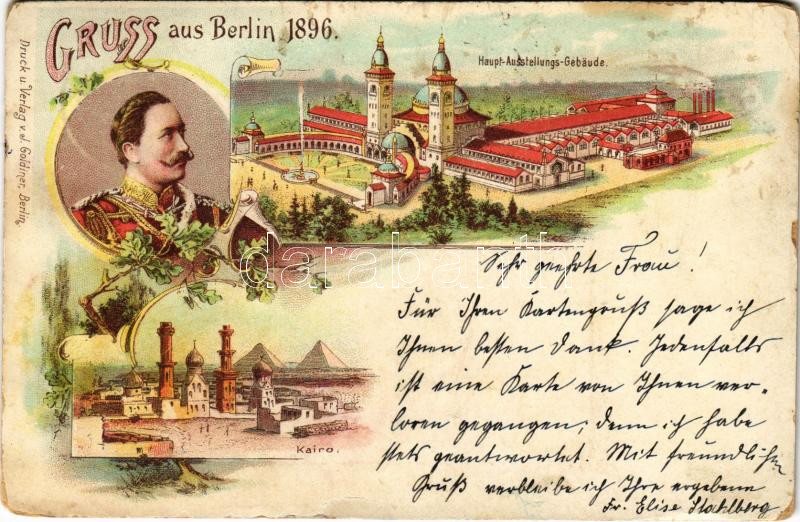 GRUSS aus Berlin 1896.
Druck u. Verlag v. J. Goldiner, Berlin.
Haupt-Ausstellungs-Gebäude.
Kairo.
darabanth
Sehr geehrte Frau!
Für Ihren Kartengruß sage ich
Ihnen besten Dank. Jedenfalls
ist eine Karte von Ihnen ver-
loren gegangen, denn ich habe
stets geantwortet. Mit freundlichm
Gruß verbleibe ich Ihre ergebene
Fr. Elise Stahlberg